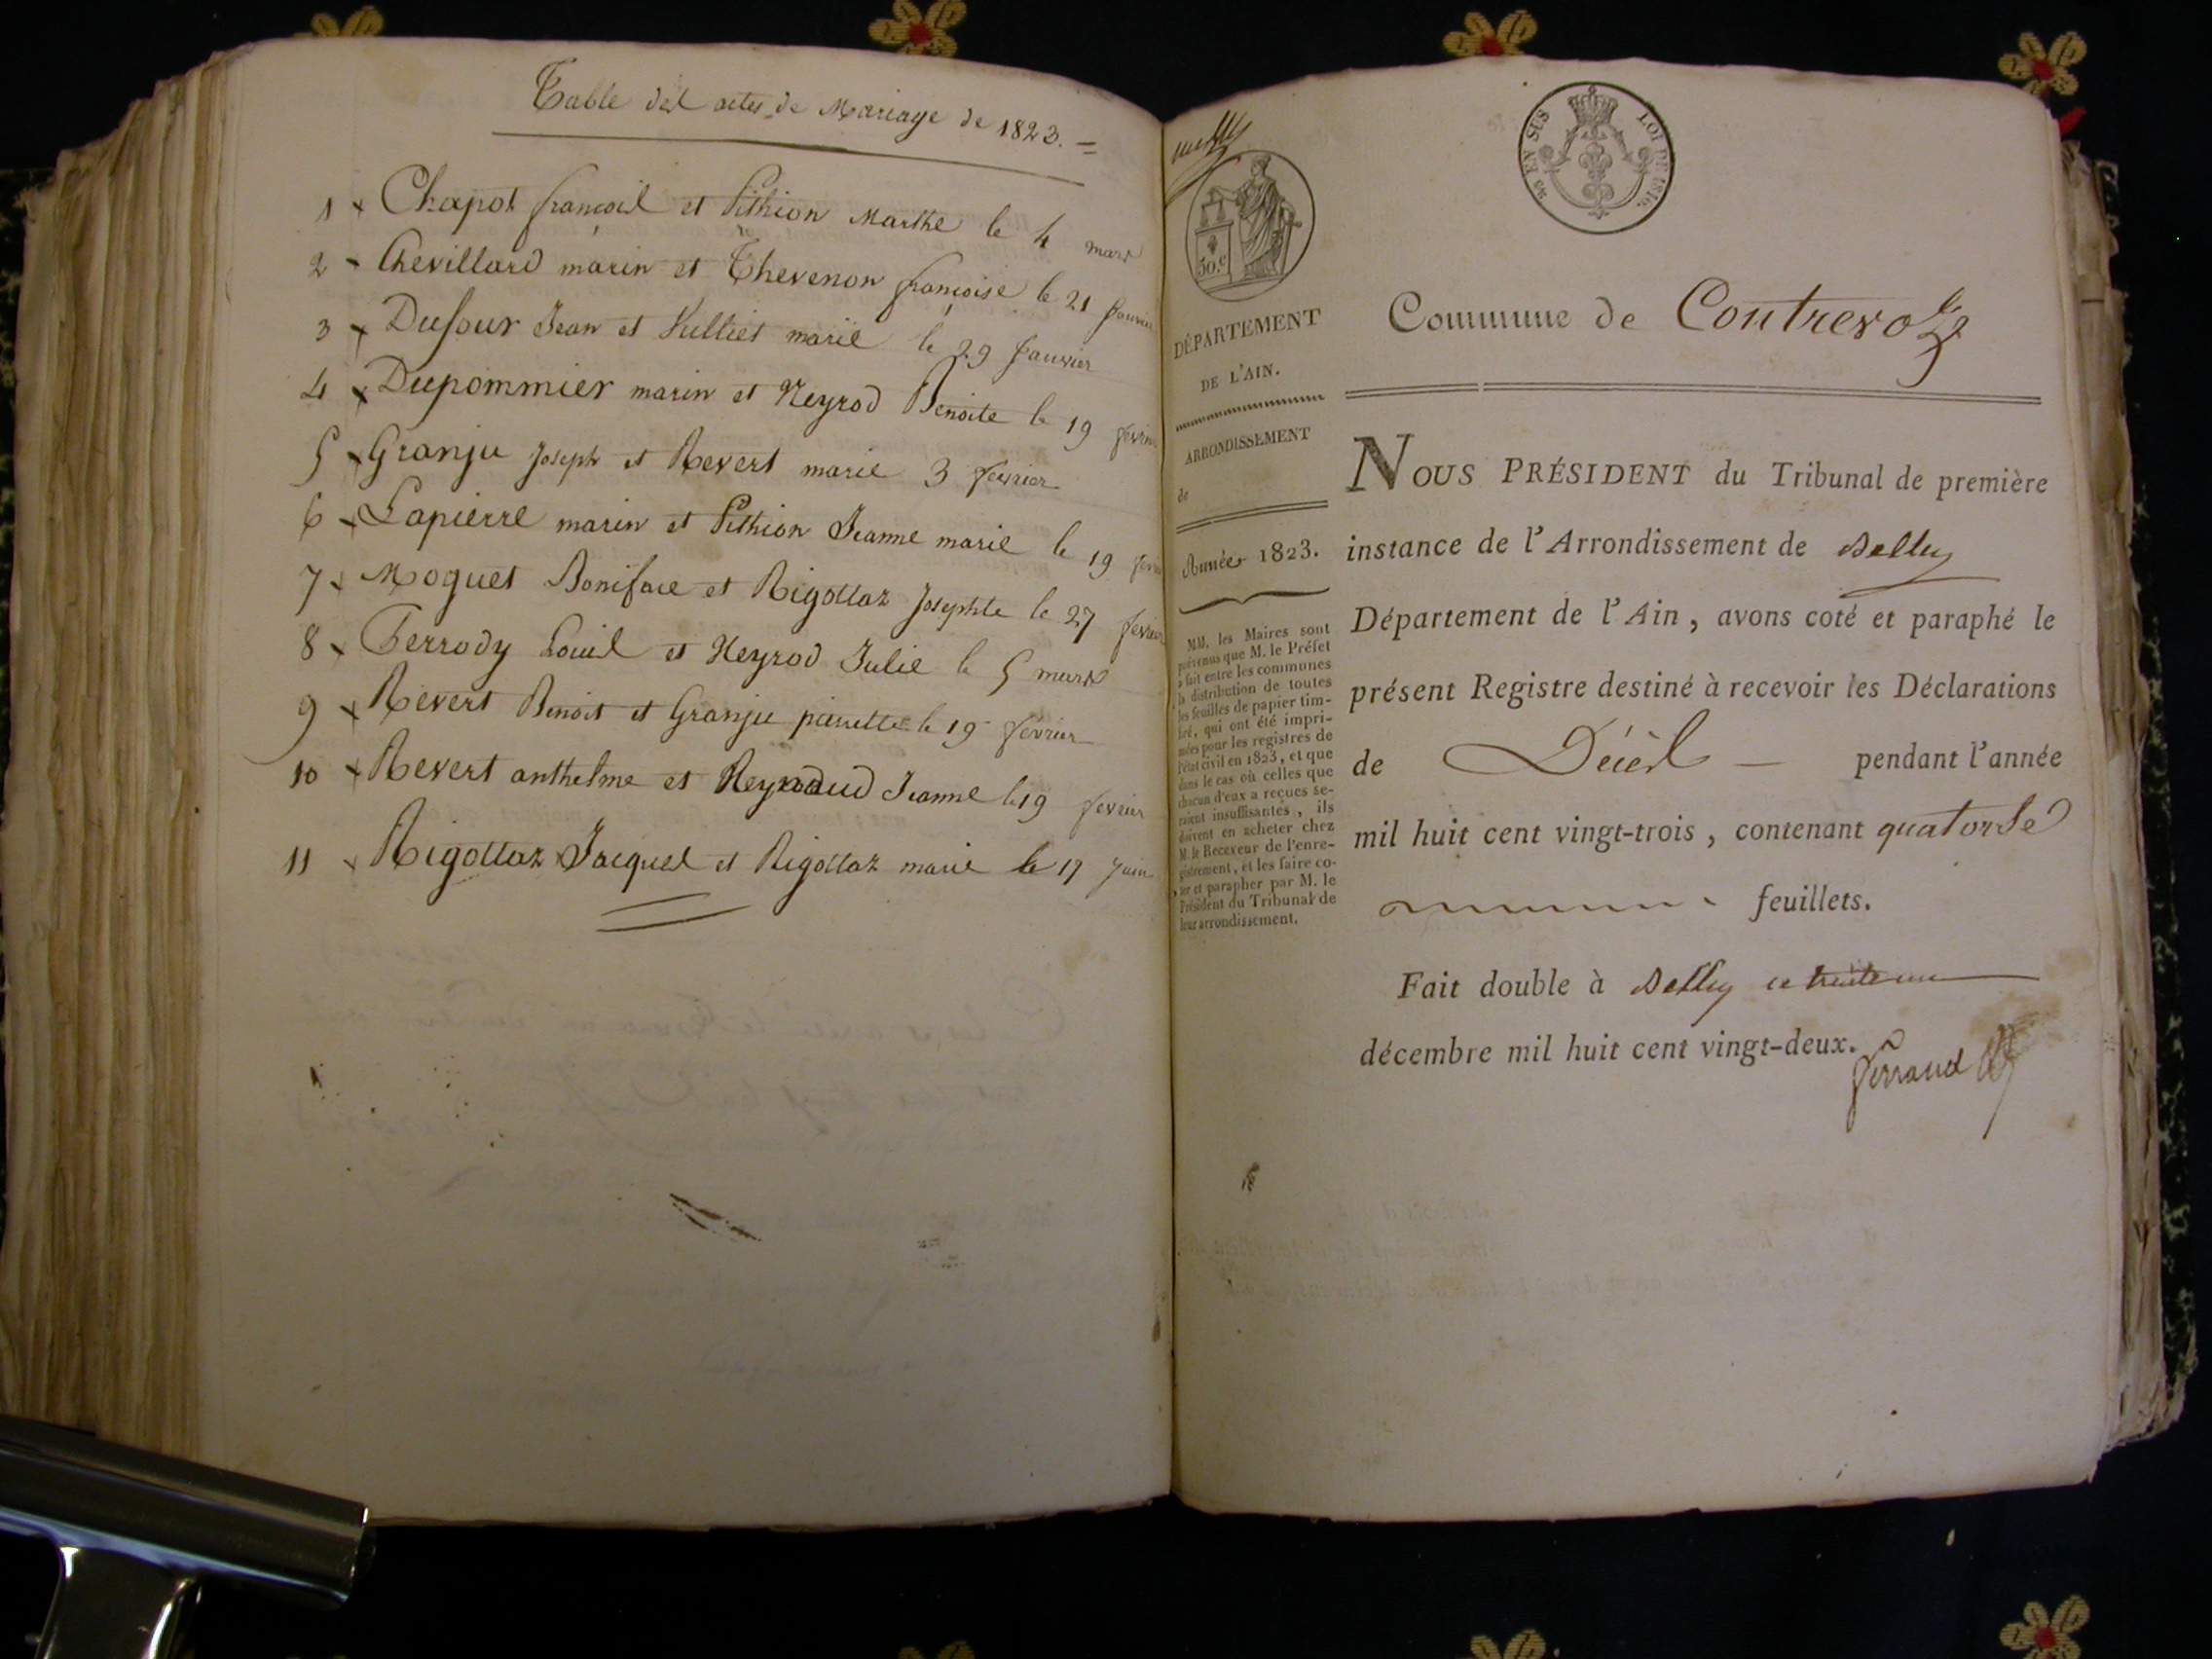 Table des actes de Mariage de 1823. =
1 x Chapot françois et Pithion Marthe le 4 mars
2 - Chevillard marin et Thevenon françoise le 21 Janvier
3 x Dufour Jean et Vulliet marie le 29 Janvier
4 x Dupommier marin et Neyrod Benoite le 19 fevrier
5 x Granju Joseph et Revert marie 3 fevrier
6 x Lapierre marin et Pithion Jeanne marie le 19 fevri
7 x Moguet Boniface et Rigottaz Josephte le 27 fevrier
8 x Perrody Louis et Neyrod Julie le 5 mars
9 x Revert Benoit et Granju pierrette le 19 fevrier
10 x Revert anthelme et Reynaud Jeanne le 19 fevrier
11 x Rigottaz Jacques et Rigottaz marie le 17 Juin
30.c
DÉPARTEMENT
DE L'AIN.
ARRONDISSEMENT
de
Année 1823.
MM. les Maires sont
prévenus que M. le Préfet
a fait entre les communes
la distribution de toutes
les feuilles de papier tim-
bré, qui ont été impri-
mées pour les registres de
l'état civil en 1823, et que
dans le cas où celles que
chacun d'eux a reçues se-
raient insuffisantes, ils
doivent en acheter chez
M. le Receveur de l'enre-
gistrement, et les faire co-
ter et parapher par M. le
Président du Tribunal de
leur arrondissement.
EN SUS LOI DE 1816.
Commune de Contrevoz
NOUS PRÉSIDENT du Tribunal de première
instance de l'Arrondissement de Belley
Département de l'Ain, avons coté et paraphé le
présent Registre destiné à recevoir les Déclarations
de Décès — pendant l'année
mil huit cent vingt-trois, contenant quatorse
feuillets.
Fait double à Belley ce trente un
décembre mil huit cent vingt-deux.